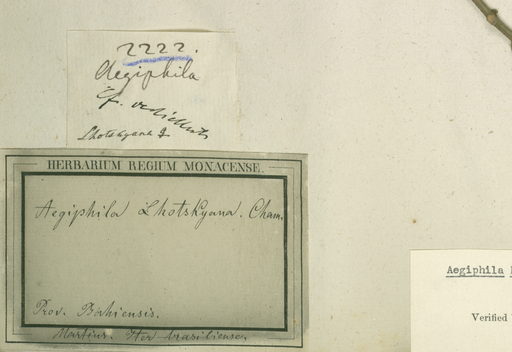 2222.
Aegiphila
Cf.
Lhotskyana
HERBARIUM REGIUM MONACENSE.
Aegiphila Lhotskyana. Cham.
Prov. Bahiensis.
Martius. Iter brasiliense.
Aegiphila
Verified